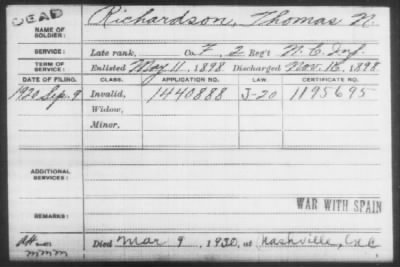 DEAD
NAME OF SOLDIER: Richardson, Thomas N.
SERVICE: Late rank, Co. F, 2 Reg't N.C. Inf.
TERM OF SERVICE: Enlisted May 11, 1898 Discharged Nov. 18, 1898
DATE OF FILING. CLASS. APPLICATION NO. LAW. CERTIFICATE NO.
1920 Sep. 9 Invalid, 1440888 J-20 1195695
Widow,
Minor,
ADDITIONAL SERVICES:
WAR WITH SPAIN
REMARKS:
Died Mar 9, 1930, at Nashville, N.C.
mmm